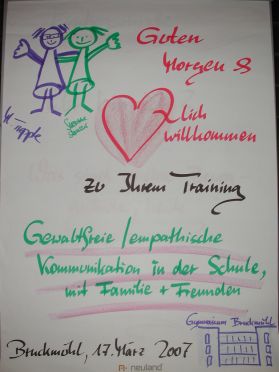 Guten
Morgen &
lich
willkommen
zu Ihrem Training
Gewaltfreie / empathische
Kommunikation in der Schule,
mit Familie + Freunden
Gymnasium Bruckmühl
Bruckmühl, 17. März 2007
neuland